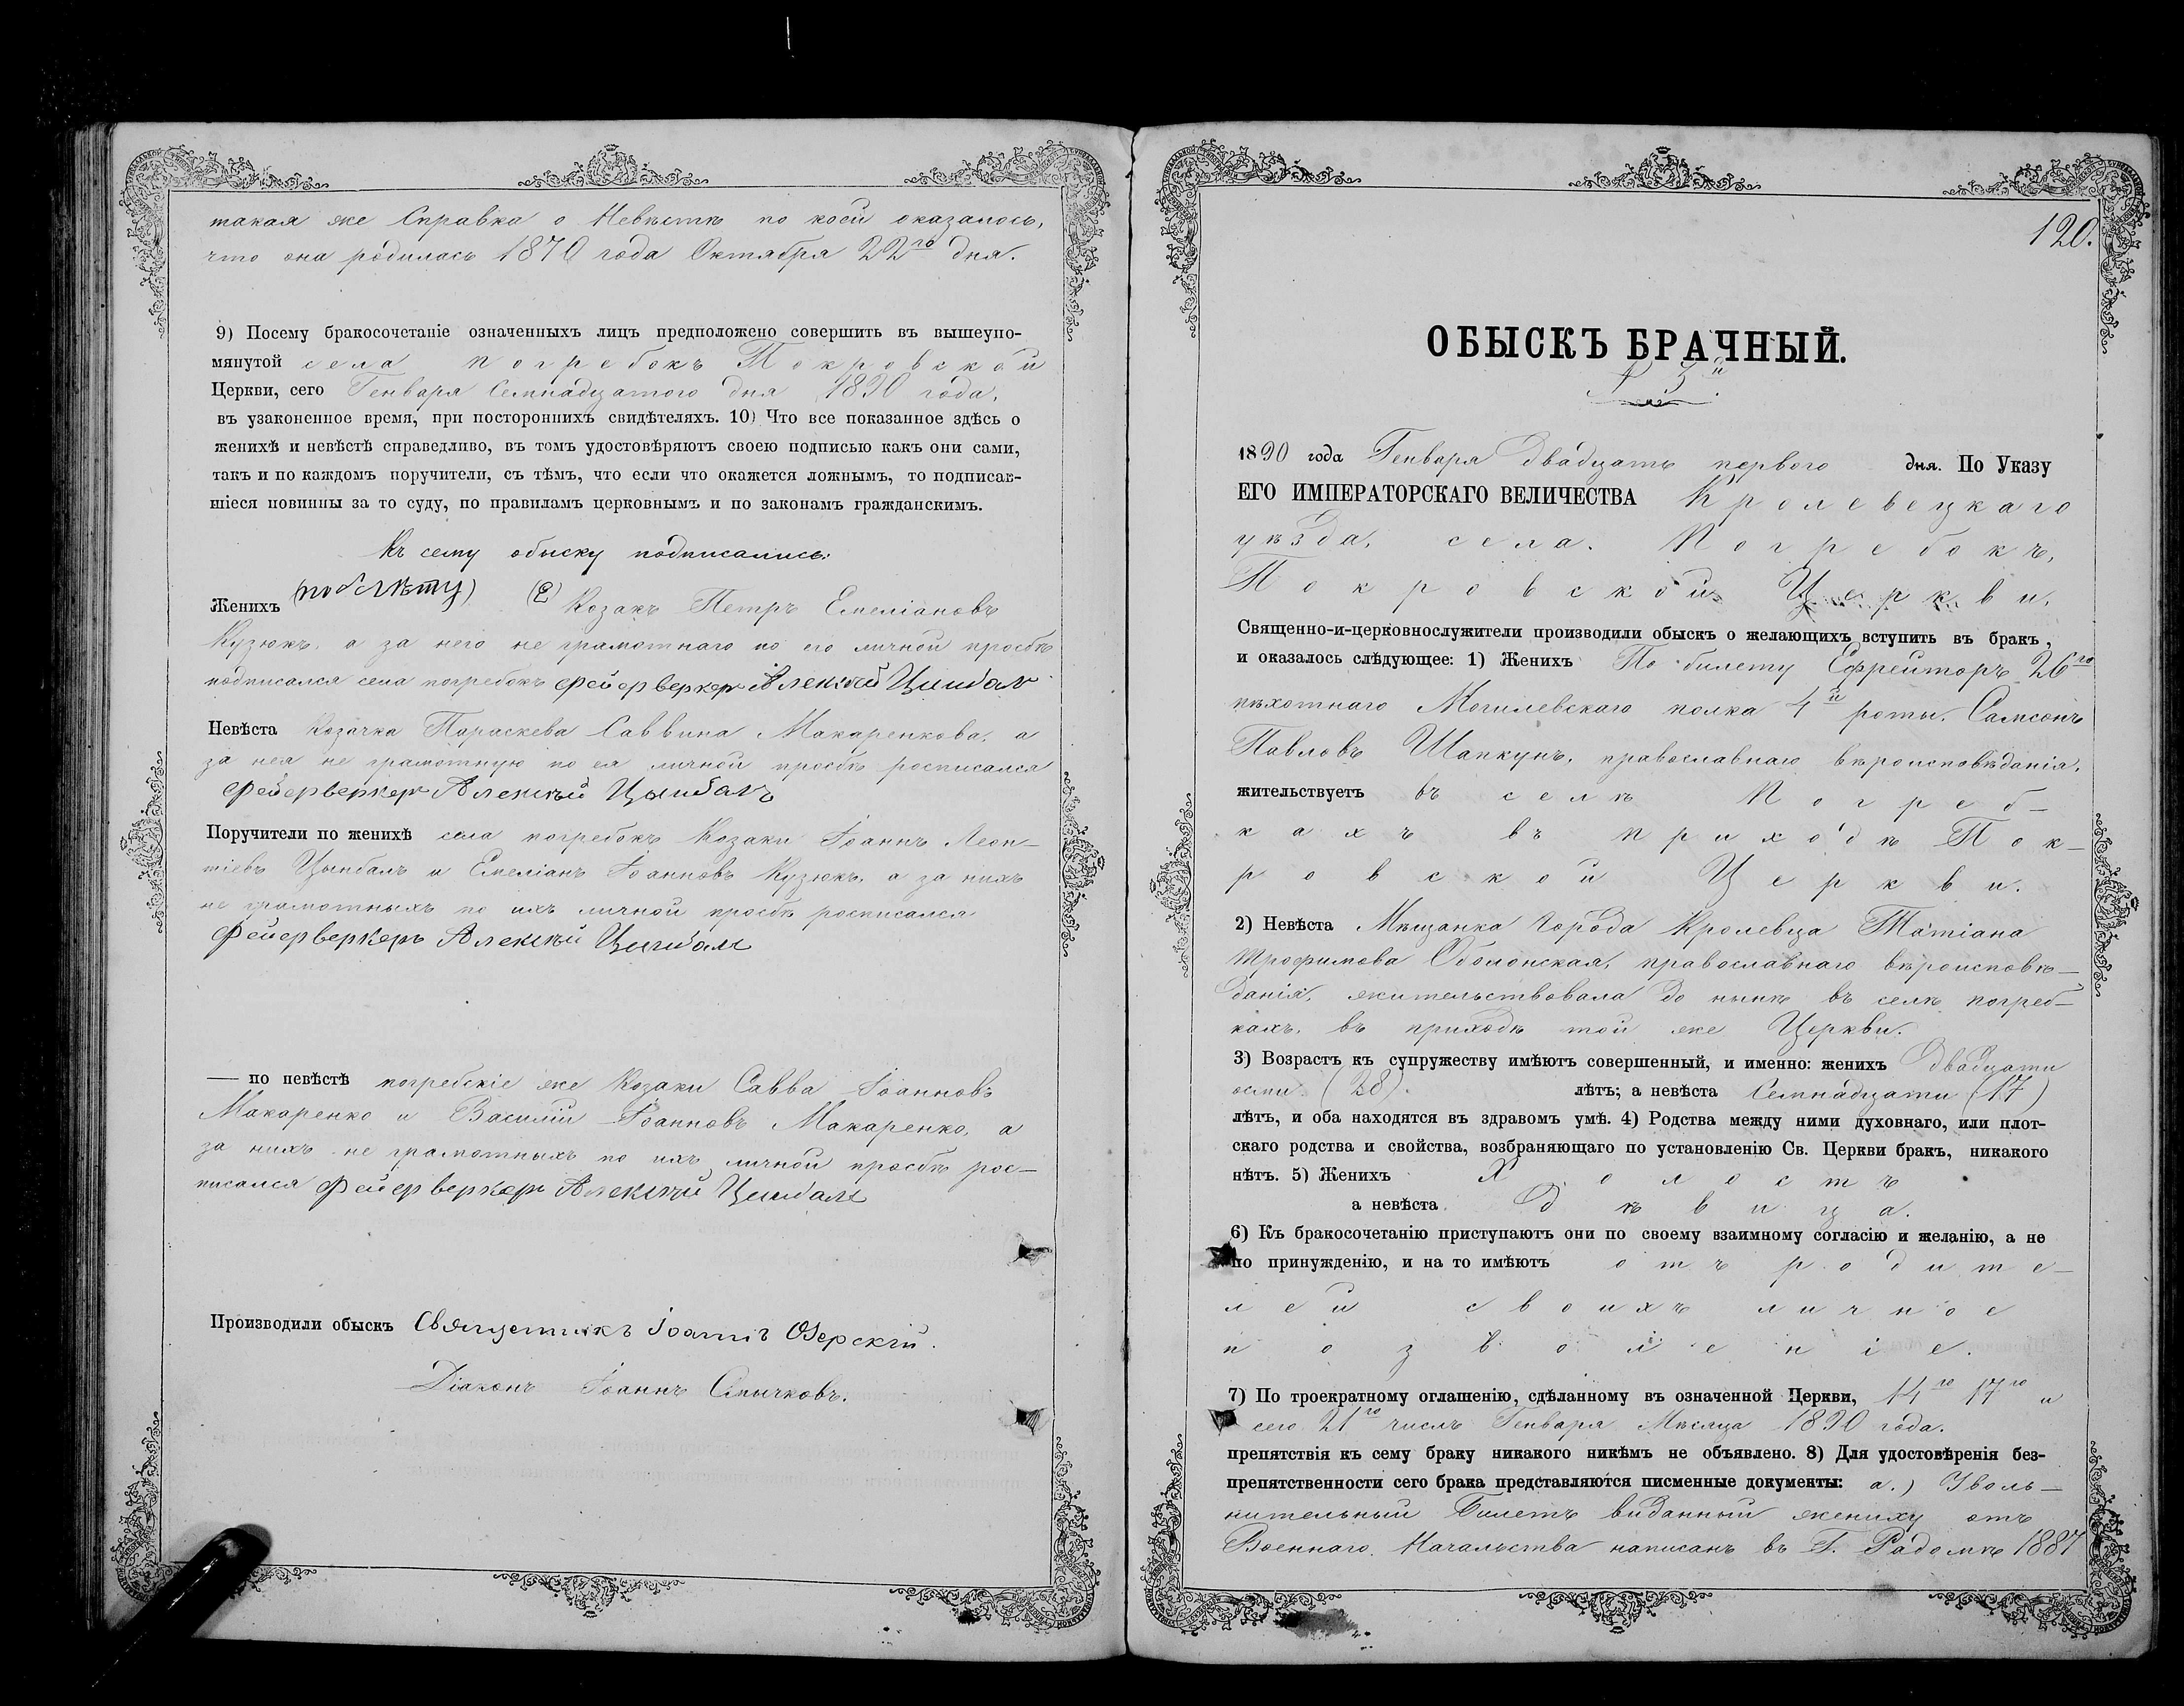 такая же Справка о Невѣстѣ по коей оказалось,
что она родилась 1870 года Октября 22го дня.
9) Посему бракосочетаніе означенныхъ лицъ предположено совершить въ вышеупо-
мянутой села Погребокъ Покровской
Церкви, сего Генваря Семнадцатого дня 1890 года,
въ узаконенное время, при постороннихъ свидѣтеляхъ. 10) Что все показанное здѣсь о
женихѣ и невѣстѣ справедливо, въ томъ удостовѣряютъ своею подписью какъ они сами,
такъ и по каждомъ поручители, съ тѣмъ, что если что окажется ложнымъ, то подписав-
шіеся повинны за то суду, по правиламъ церковнымъ и по законамъ гражданскимъ.
Къ сему обыску подписались:
Женихъ Козакъ Петръ Емеліановъ
Кузюкъ, а за него не грамотнаго по его личной просбѣ
подписался села погребокъ фейерверкер Алексѣй Цимбал
Невѣста Козачка Параскева Саввина Макаренкова, а
за нея не грамотную по ея личной просбѣ росписался
фейерверкер Алексѣй Цымбалъ
Поручители по женихѣ села погребокъ Козаки Іоаннъ Леон-
тіевъ Цымбалъ и Емеліанъ Іоанновъ Кузюкъ, а за нихъ
не грамотныхъ по ихъ личной просбѣ росписался
фейерверкеръ Алексѣй Цимбалъ
— по невѣстѣ погребскіе же Козаки Савва Іоанновъ
Макаренко и Василій Іоанновъ Макаренко, а
за нихъ не грамотныхъ по ихъ личной просбѣ рос-
писался фейерверкеръ Алексѣй Цимбалъ
Производили обыскъ Священникъ Іоаннъ Озерскій.
Діаконъ Іоаннъ Смычковъ.
120.
ОБЫСКЪ БРАЧНЫЙ.
№ 3й
1890 года Генваря Двадцать первого дня. По Указу
ЕГО ИМПЕРАТОРСКАГО ВЕЛИЧЕСТВА Кролевецкаго
уѣзда, села Погребокъ,
Покровской Церкви,
Священно-и-церковнослужители производили обыскъ о желающихъ вступить въ бракъ,
и оказалось слѣдующее: 1) Женихъ По билету Ефрейторъ 26го
пѣхотнаго Могилевскаго полка 4й роты. Самсонъ
Павловъ Шапкунъ, православнаго вѣроисповѣданія,
жительствуетъ въ селѣ Погреб-
кахъ въ приходѣ Пок-
ровской Церкви.
2) Невѣста Мѣщанка города Кролевца Татіана
Трофимова Оболонская, православнаго вѣроисповѣ-
данія, жительствовала до нынѣ въ селѣ погреб-
кахъ, въ приходѣ той же Церкви.
3) Возрастъ къ супружеству имѣютъ совершенный, и именно: женихъ Двадцати
осми (28) лѣтъ; а невѣста Семнадцати (17)
лѣтъ, и оба находятся въ здравомъ умѣ. 4) Родства между ними духовнаго, или плот-
скаго родства и свойства, возбраняющаго по установленію Св. Церкви бракъ, никакого
нѣтъ. 5) Женихъ Холостъ
а невѣста Дѣвица.
6) Къ бракосочетанію приступаютъ они по своему взаимному согласію и желанію, а не
по принужденію, и на то имѣютъ отъ родите-
лей своихъ личное
позволеніе.
7) По троекратному оглашенію, сдѣланному въ означенной Церкви, 14го 17го и
сего 21го числъ Генваря Мѣсяца 1890 года.
препятствія къ сему браку никакого никѣмъ не объявлено. 8) Для удостовѣренія без-
препятственности сего брака представляются писменные документы: а.) Уволь-
нительный Билетъ виданный жениху отъ
Военнаго Начальства написанъ въ Г. Радомѣ 1887